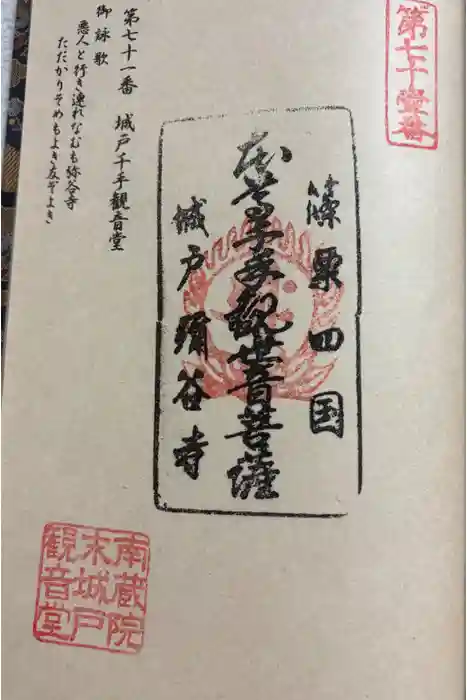 第七十壹番
篠栗四国
本尊千手観世音菩薩
城戸弥谷寺
第七十一番　城戸千手観音堂
御詠歌
悪人と行き連れなむも弥谷寺
ただかりそめもよき友ぞよき
南蔵院
末城戸
観音堂